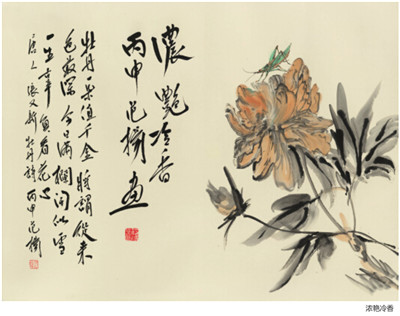 濃艷冷香
丙申范畫
牡丹一朵值千金將謂從來
色最深今日滿欄開似雪
一生辜負看花心
唐人張又新牡丹詩丙申范
浓艳冷香